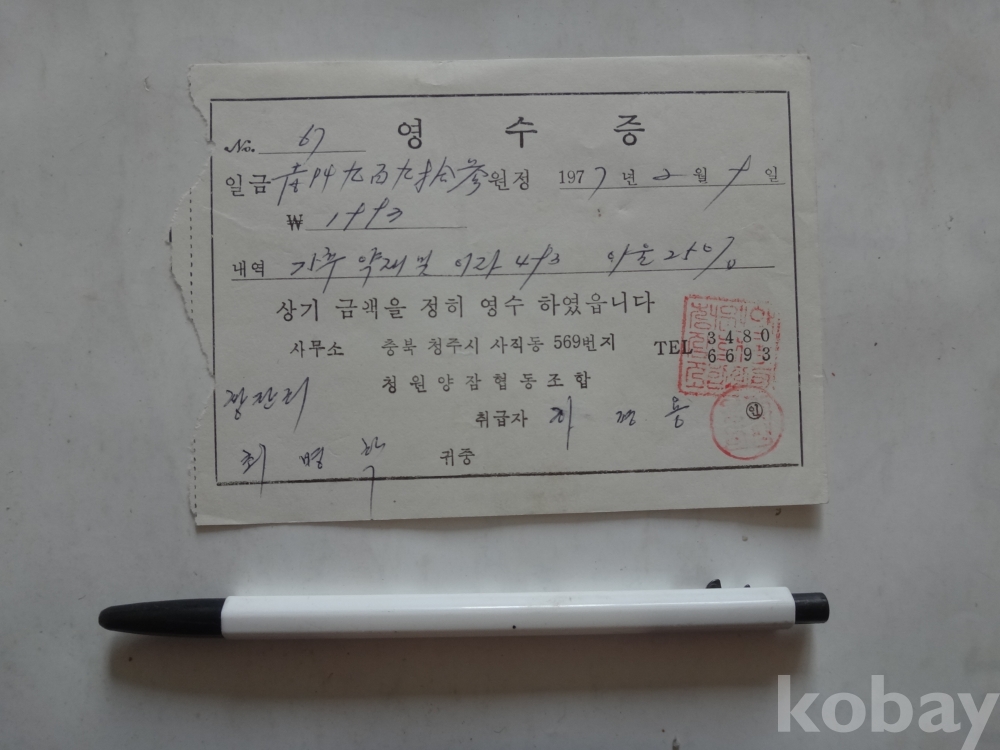 No. 67 영 수 증
일금 壹阡九百九拾參 원정 1977 년 2 월 9 일
₩ 1993
내역 가축 약재 및 이라 493 아울 25%
상기 금액을 정히 영수 하였읍니다
사무소 충북 청주시 사직동 569번지 TEL 3480 6693
청원양잠협동조합
장잔리
취급자 용 ㊞
최 병 학 귀중
kobay